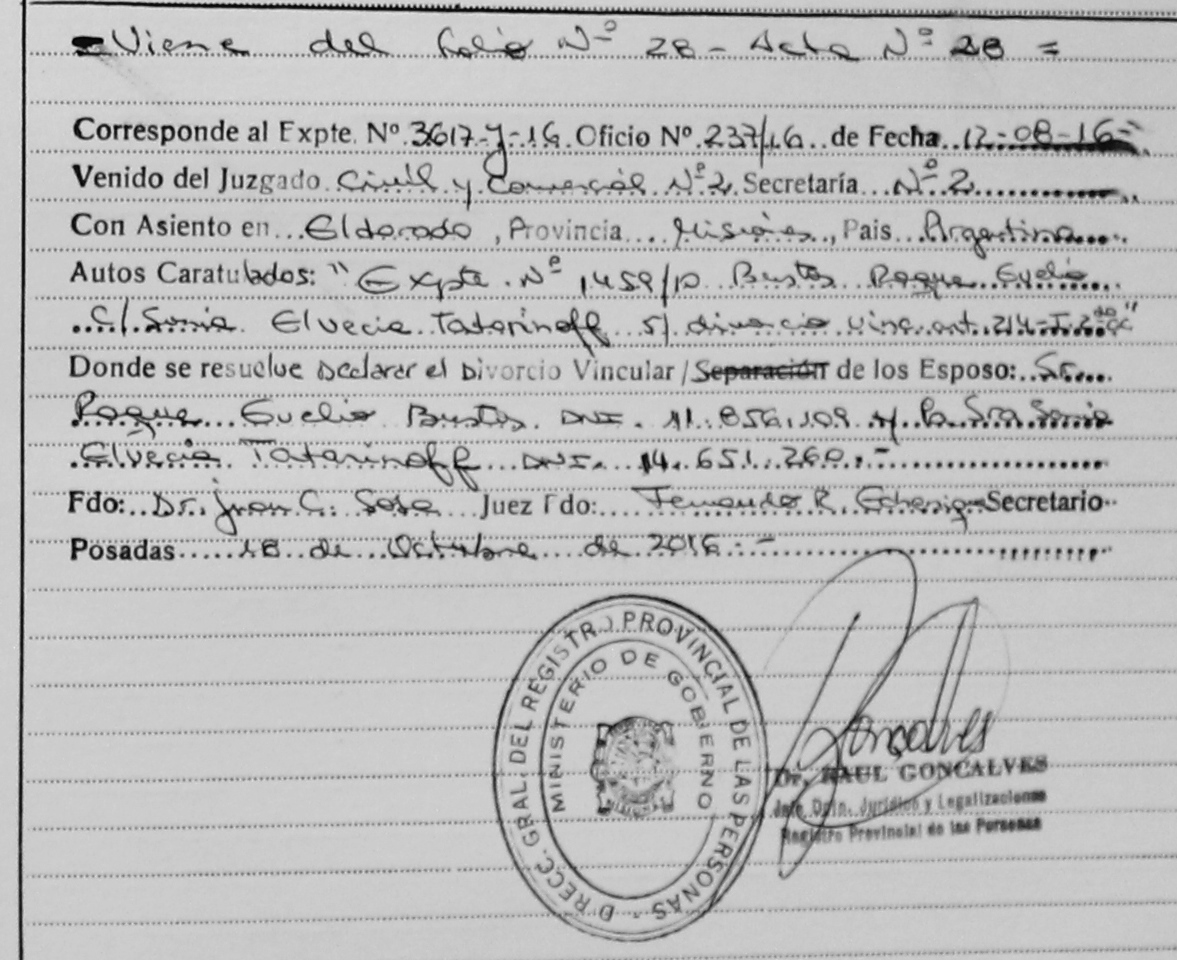 - Viene del folio Nº 28 - Acta Nº 28 =
Corresponde al Expte. Nº 3617-y-16 Oficio Nº 237/16 de Fecha 12-08-16-
Venido del Juzgado Civil y Comercial Nº 2 Secretaría Nº 2
Con Asiento en Eldorado, Provincia Misiones, Pais Argentina
Autos Caratulados: "Expte. Nº 1459/10 Bustos Roque Evelio
C/ Sonia Elvecia Tatarinoff s/ divorcio vinc. ant. 214
Donde se resuelve Declarar el Divorcio Vincular / Separación de los Esposo: Sr.
Roque Evelio Bustos DNI. 11.856.109 y la Sra Sonia
Elvecia Tatarinoff DNI. 14.651.260.-
Fdo: Dr. Juan C. Sosa Juez Fdo: Fernando R. Secretario
Posadas 18 de Octubre de 2016.-
DIRECC. GRAL. DEL REGISTRO PROVINCIAL DE LAS PERSONAS -
MINISTERIO DE GOBIERNO
Goncalves
Dr. RAUL GONCALVES
Jefe Dpto. Jurídico y Legalizaciones
Registro Provincial de las Personas